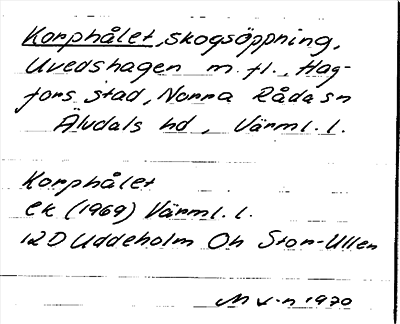 Korphålet, skogsöppning,
Uvedshagen m. fl., Hag-
fors stad, Norra Råda sn
Älvdals hd, Värml. l.
Korphålet
ek (1969) Värml. l.
12D Uddeholm Oh Stor-Ullen
1970